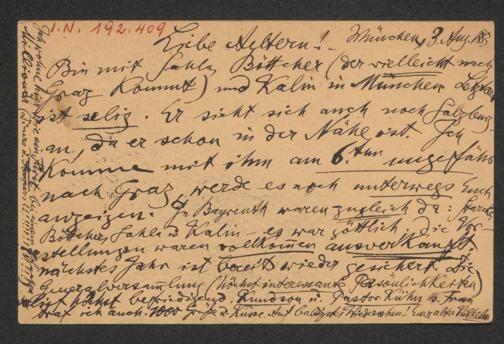 I.N. 192.409
Liebe Aeltern! München, 3. Aug. 188
Bin mit Sahla, Böttcher (der vielleicht nach
Graz kommt) und Kalin in München Letzter
ist selig. Er sieht sich auch noch Salzburg
an, da er schon in der Nähe ist. Ich
komme mit ihm am 6.ten ungefähr
nach Graz, werde es noch unterwegs Euch
anzeigen. In Bayreuth waren zugleich da:
Böttcher, Sahla u. Kalin, es war göttlich, die Vor
stellungen waren vollkomen ausverkauft
nächstes Jahr ist bereits wieder gesichert. Die
Generalversammlung (höchst interessante Persönlichkeiten)
höchst befriedigend. Knudson u. Pastor
traf ich auch. 1000 Grüße u. Küsse. Auf baldiges Wiedersehen! Euer alter